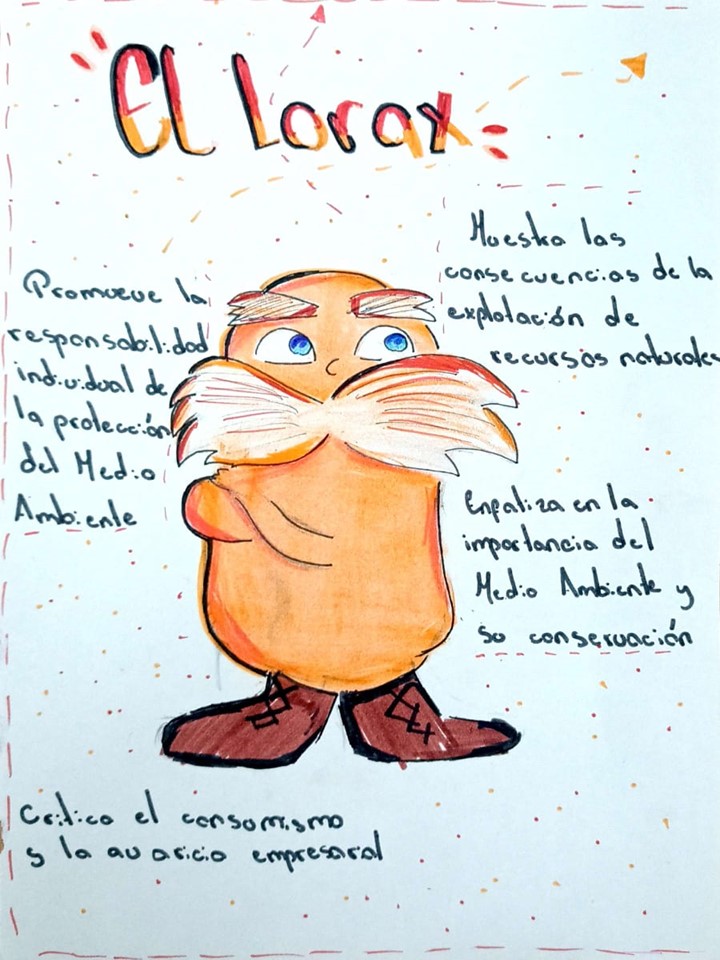 El Lorax
Promueve la
responsabilidad
individual de
la protección
del Medio
Ambiente
Muestra las
consecuencias de la
explotación de
recursos naturales
Enpatiza en la
importancia del
Medio Ambiente y
su conservación
Critica el consumismo
y la avaricia empresarial